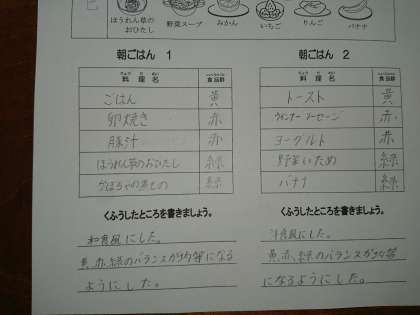 ほうれん草の
おひたし
野菜スープ
みかん
いちご
りんご
バナナ
朝ごはん 1
りょう り めい
料 理 名
食品群
ごはん 黄
卵焼き 赤
豚汁 赤
ほうれん草のおひたし 緑
かぼちゃの煮もの 緑
くふうしたところを書きましょう。
和食風にした。
黄、赤、緑のバランスが均等になる
ようにした。
朝ごはん 2
りょう り めい
料 理 名
食品群
トースト 黄
ウィンナーソーセージ 赤
ヨーグルト 赤
野菜いため 緑
バナナ 緑
くふうしたところを書きましょう。
洋食風にした。
黄、赤、緑のバランスが均等
になるようにした。